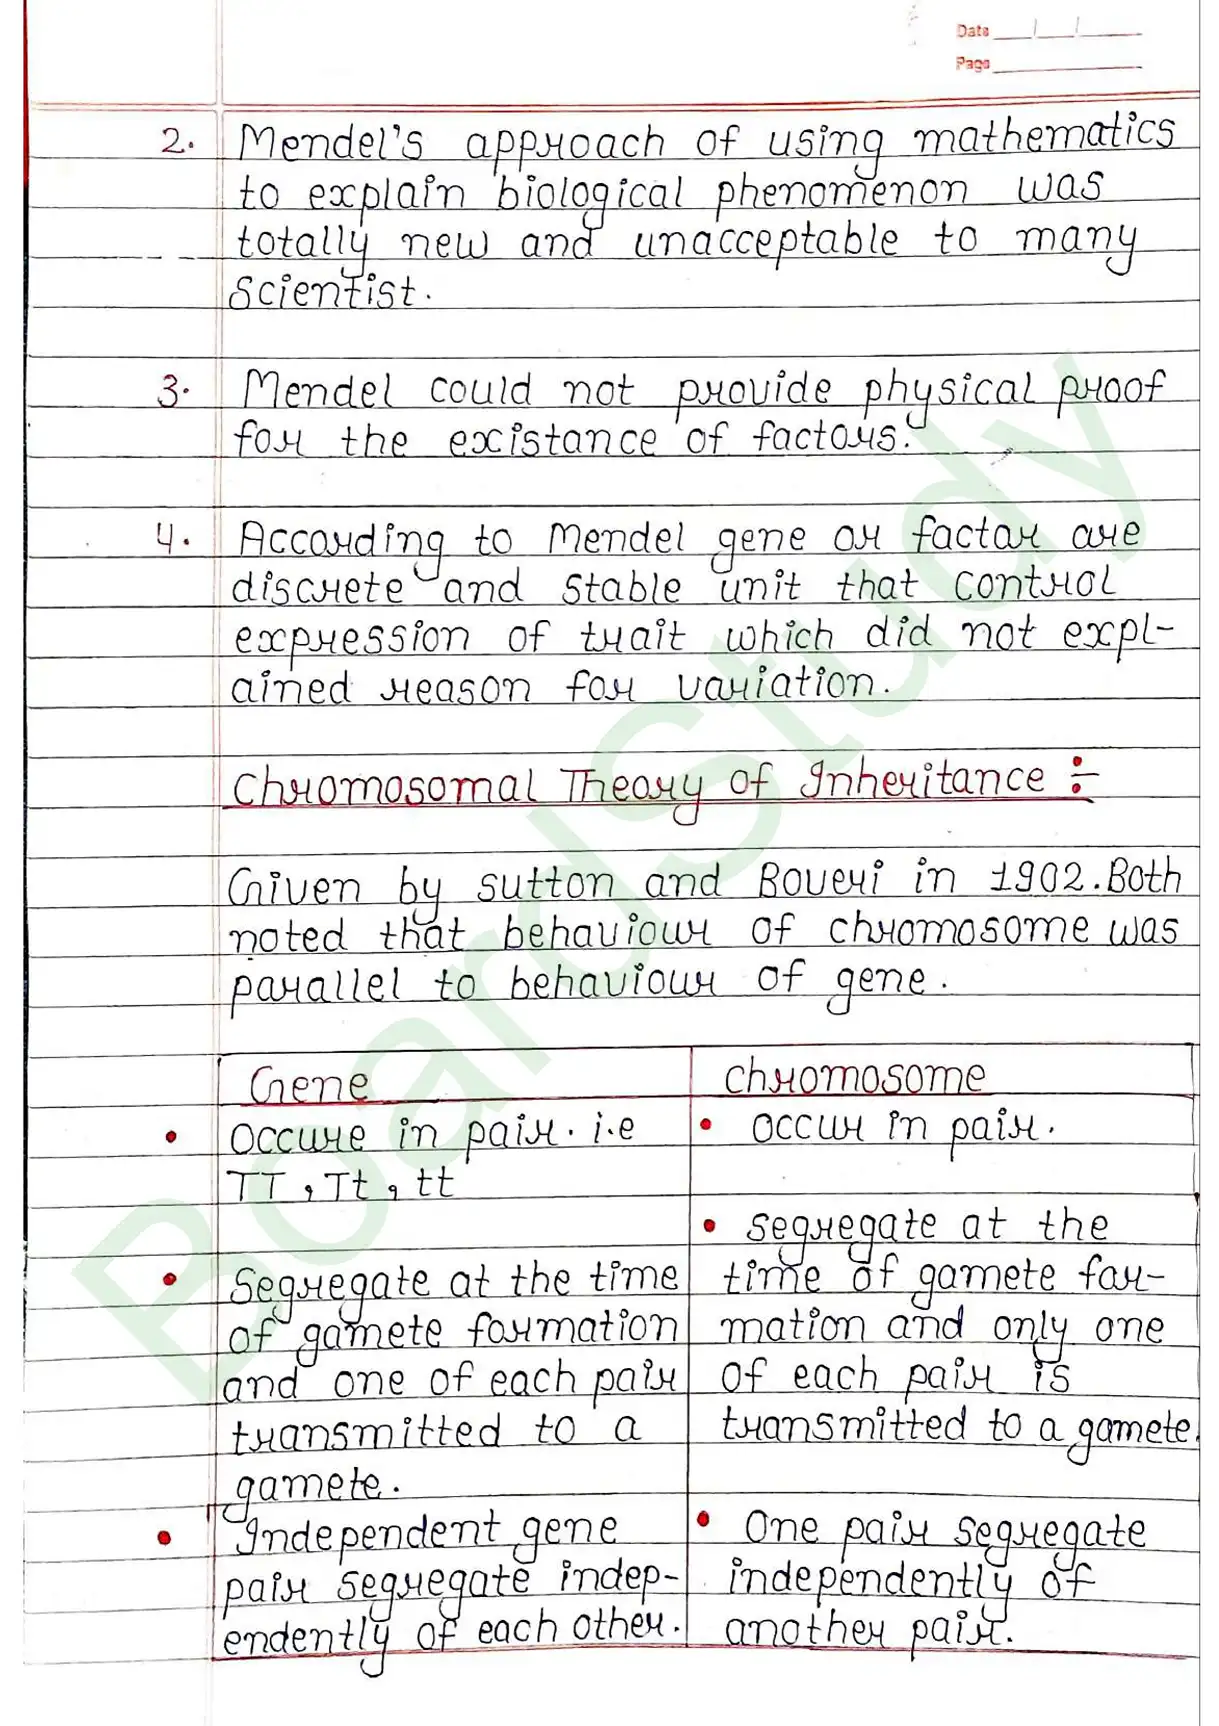 Date __/__/__
Page
2. Mendel's approach of using mathematics
to explain biological phenomenon was
totally new and unacceptable to many
Scientist.
3. Mendel could not provide physical proof
for the existance of factors.
4. According to Mendel gene or factor are
discrete and stable unit that control
expression of trait which did not expl-
ained reason for variation.
Chromosomal Theory of Inheritance :-
Given by Sutton and Boveri in 1902. Both
noted that behaviour of chromosome was
parallel to behaviour of gene.
Gene
• Occure in pair. i.e
TT, Tt, tt
• Segregate at the time
of gamete formation
and one of each pair
transmitted to a
gamete.
• Independent gene
pair segregate indep-
endently of each other.
Chromosome
• Occur in pair.
• Segregate at the
time of gamete for-
mation and only one
of each pair is
transmitted to a gamete.
• One pair segregate
independently of
another pair.
BoardStudy